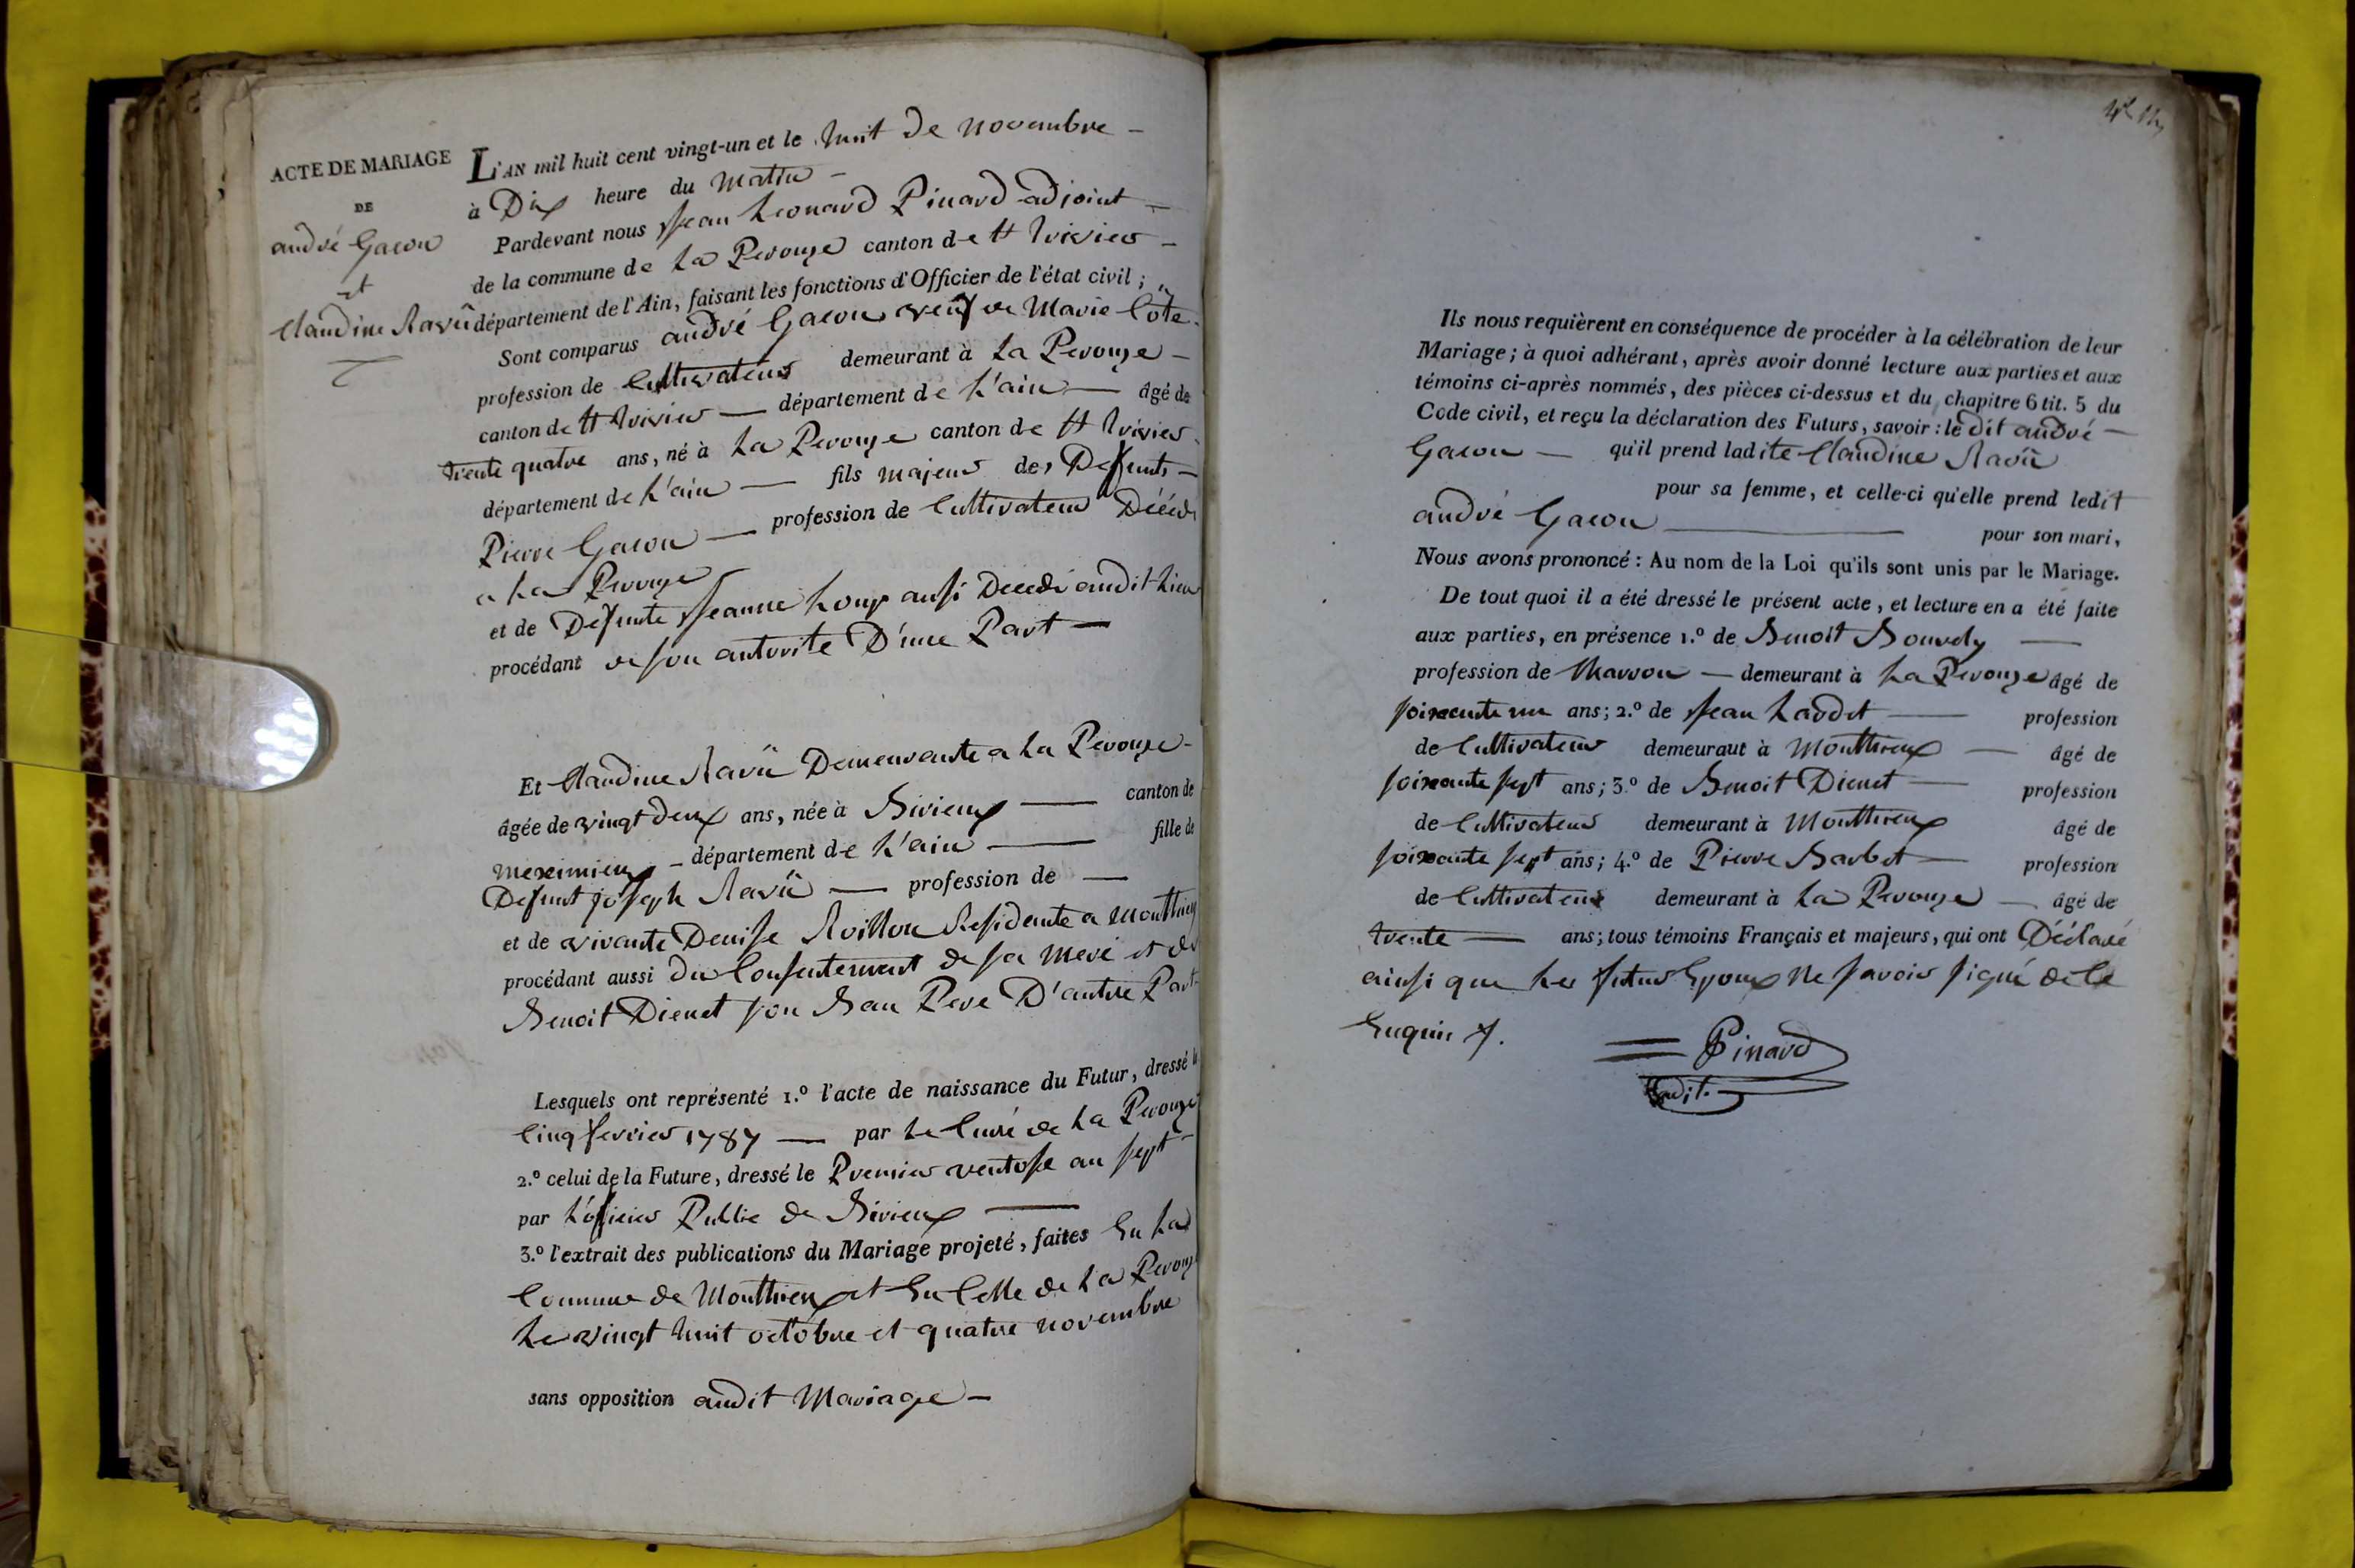 ACTE DE MARIAGE
DE
andré Gacon
et
Claudine Ravû
L'AN mil huit cent vingt-un et le huit de novembre -
à Dix heure du matin -
Pardevant nous Jean Leonard Pinard adjoint -
de la commune de La Perouze canton de St trivier -
département de l'Ain, faisant les fonctions d'Officier de l'état civil ;
Sont comparus andré Gacon veuf de Marie Cote
profession de Cultivateur demeurant à La Perouze -
canton de St trivier — département de L'ain — âgé de
trente quatre ans, né à La Perouze canton de St trivier
département de L'ain — fils majeur des Deffunts -
Pierre Gacon — profession de Cultivateur Décédé
a La Perouze
et de Defunte Jeanne Long aussi Decedé audit Lieu
procédant de son autorite D'une Part —
Et Claudine Ravû Demeurante a La Perouze -
âgée de vingt deux ans, née à Birieux — canton de
meximieux - département de L'ain — fille de
Defunt joseph Ravû — profession de —
et de vivante Denise Roillon Residente a Monthieux
procédant aussi du Consentement de sa mere et de
Benoit Dienet son Bau Pere D'autre Part
Lesquels ont représenté 1.º l'acte de naissance du Futur, dressé le
Cinq fevrier 1787 — par Le Curé de La Perouze
2.º celui de la Future, dressé le Premier ventose an sept -
par L'officier Public de Birieux —
3.º l'extrait des publications du Mariage projeté, faites En La
Commune de Monthieux et En Celle de La Perouze
Le vingt huit octobre et quatre novembre
sans opposition audit Mariage -
Ils nous requièrent en conséquence de procéder à la célébration de leur
Mariage ; à quoi adhérant, après avoir donné lecture aux parties et aux
témoins ci-après nommés, des pièces ci-dessus et du chapitre 6 tit. 5 du
Code civil, et reçu la déclaration des Futurs, savoir : le dit andré -
Gacon — qu'il prend ladite Claudine Ravû
pour sa femme, et celle-ci qu'elle prend ledit
andré Gacon — pour son mari,
Nous avons prononcé : Au nom de la Loi qu'ils sont unis par le Mariage.
De tout quoi il a été dressé le présent acte, et lecture en a été faite
aux parties, en présence 1.º de Benoit Bouvdy —
profession de Marron — demeurant à La Perouze âgé de
soixante un ans ; 2.º de Jean Laodit — profession
de Cultivateur demeurant à Monthieux — âgé de
soixante sept ans ; 3.º de Benoit Dienet — profession
de Cultivateur demeurant à Monthieux âgé de
soixante sept ans ; 4.º de Pierre Barbet — profession
de Cultivateur demeurant à La Perouze — âgé de
trente — ans ; tous témoins Français et majeurs, qui ont Déclaré
ainsi que Les futur Epoux ne savoir signé de Ce
Enquis
Pinard